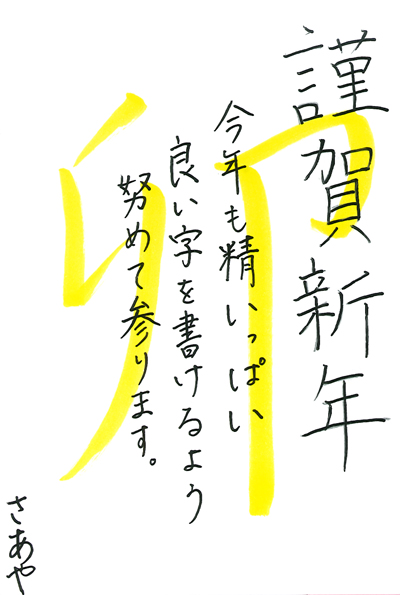 謹賀新年
今年も精いっぱい
良い字を書けるよう
努めて参ります。
さあや
卯